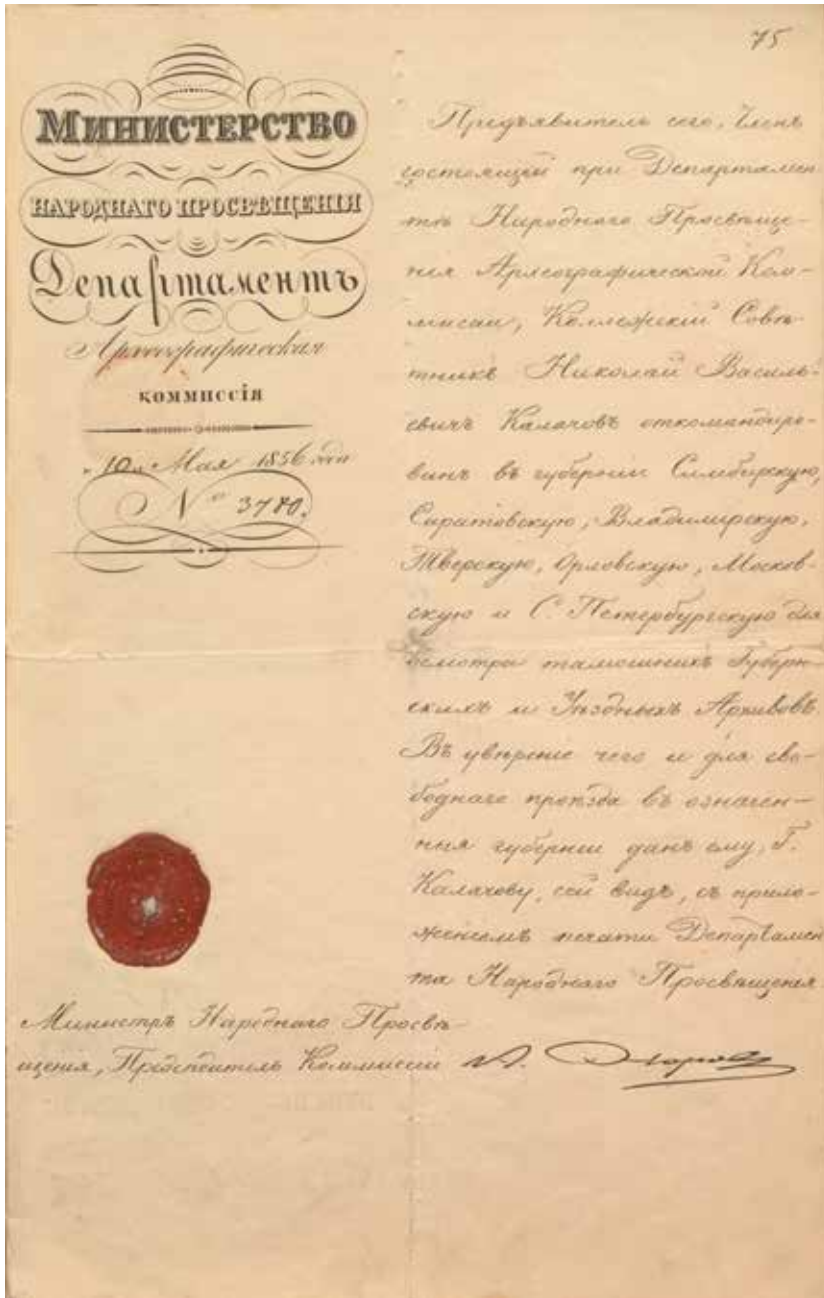 75
МИНИСТЕРСТВО
НАРОДНАГО ПРОСВѢЩЕНІЯ
Департаментъ
Археографическая
КОММИССІЯ
„10„ Мая 1856 года
№ 3780.
Предъявитель сего, Членъ
состоящей при Департамен-
тѣ Народнаго Просвѣще-
нія Археографической Ком-
мисіи, Коллежскій Совѣ-
тникъ Николай Василь-
евичъ Калачовъ откомандиро-
ванъ въ губерніи Симбирскую,
Саратовскую, Владимирскую,
Тверскую, Орловскую, Москов-
скую и С. Петербургскую для
осмотра тамошнихъ Губерн-
скихъ и Уѣздныхъ Архивовъ.
Въ увѣреніе чего и для сво-
боднаго проѣзда въ означен-
ныя губерніи данъ ему, Г.
Калачову, сей видъ, съ прило-
женіемъ печати Департамен
та Народнаго Просвѣщенія.
Министръ Народнаго Просвѣ-
щенія, Предсѣдатель Коммиссіи А. Норовъ